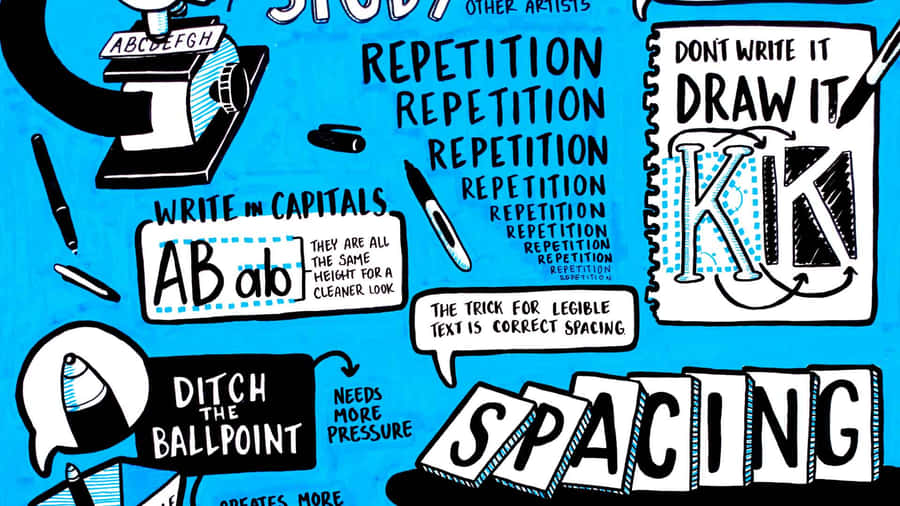 STUDY
OTHER ARTISTS
ABCDEFGH
REPETITION
REPETITION
REPETITION
REPETITION
REPETITION
REPETITION
REPETITION
REPETITION
REPETITION
REPETITION
DON'T WRITE IT
DRAW IT
K K
WRITE IN CAPITALS
AB ab
THEY ARE ALL
THE SAME
HEIGHT FOR A
CLEANER LOOK
THE TRICK FOR LEGIBLE
TEXT IS CORRECT SPACING.
DITCH
THE
BALLPOINT
NEEDS
MORE
PRESSURE
SPACING
CREATES MORE